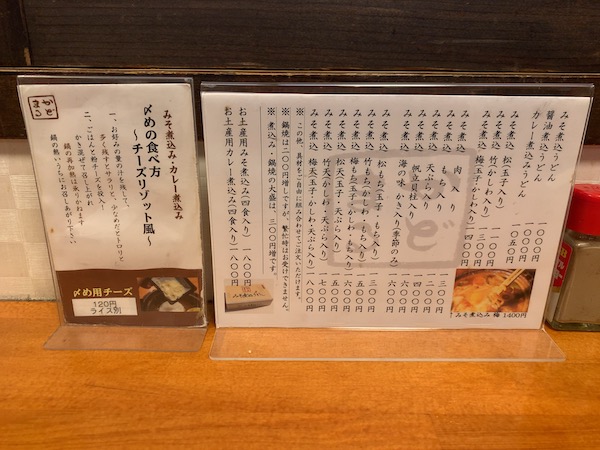 みそ煮込うどん
醤油煮込うどん
カレー煮込みうどん 一〇五〇円
みそ煮込 松(玉子入り)
みそ煮込 竹(かしわ入り)
みそ煮込 梅(玉子・かしわ入り) 一四〇〇円
みそ煮込 肉入り 一三〇〇円
みそ煮込 もち入り 一二〇〇円
みそ煮込 天ぷら入り 一四〇〇円
みそ煮込 帆立貝柱入り 一六〇〇円
みそ煮込 海の味 かき入り(季節のみ) 一六〇〇円
みそ煮込 松もち(玉子・もち入り) 一三〇〇円
みそ煮込 竹もち(かしわ・もち入り) 一五〇〇円
みそ煮込 梅もち(玉子・かしわ・もち入り) 一六〇〇円
みそ煮込 松天(玉子・天ぷら入り) 一五〇〇円
みそ煮込 竹天(かしわ・天ぷら入り) 一七〇〇円
みそ煮込 梅天(玉子・かしわ・天ぷら入り) 一八〇〇円
※この他、具材をご自由に組み合わせてご注文いただけます。
※鍋焼は二〇〇円増しですが、繁忙時はお受けできません。
※煮込み・鍋焼の大盛は、三〇〇円増です。
お土産用みそ煮込み(四食入り) 一八〇〇円
お土産用カレー煮込み(四食入り) 一八〇〇円
↑みそ煮込み 梅 1400円
かどまる
みそ煮込み・カレー煮込み
〆めの食べ方
～チーズリゾット風～
一、お好みの量の汁を残して、
多く残すとサラリと、少なめだとトロリと
二、ごはんと粉チーズを投入!
かき混ぜて召し上がれ
鍋の再加熱は承りかねます
鍋の熱いうちにお召しあがり下さい
〆め用チーズ
120円
ライス別